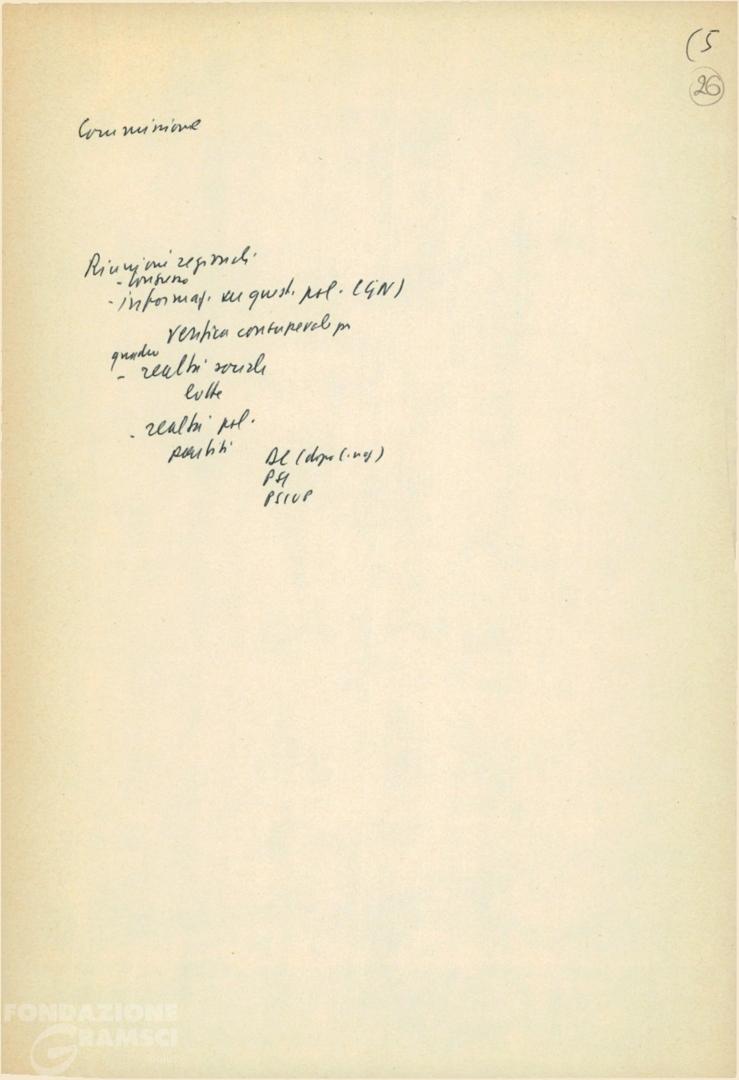 (5
26
Commissione
Riunioni regionali
- informaz. su quest. pol. (GN)
verifica
quadro
- realtà sociale
lotte
- realtà pol.
partiti
DC (dopo
PSI
PSIUP
FONDAZIONE
GRAMSCI